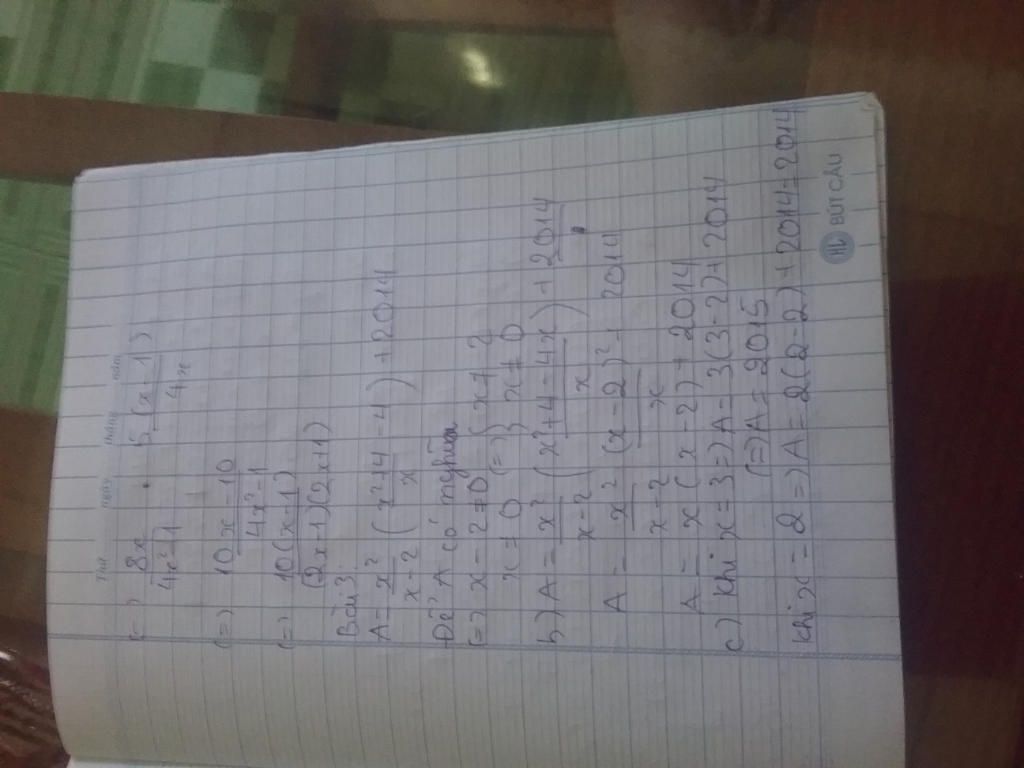 Thứ ngày tháng năm
(=) 8x/(4x²-1) · 5(x-1)/4x
(=) (10x-10)/(4x²-1)
(=) 10(x-1)/((2x-1)(2x+1))
Bài 3
A = x²/(x-2) (x²+4/x - 4) + 2014
Để A có nghĩa
(=) x-2≠0 (=) { x≠2
x≠0 x≠0
b) A = x²/(x-2) ((x²+4-4x)/x) + 2014
A = x²/(x-2) (x-2)²/x + 2014
A = x(x-2) + 2014
c) Khi x=3 =) A=3(3-2)+2014
(=) A=2015
Khi x=2 =) A=2(2-2)+2014=2014
BÚT CHÂU